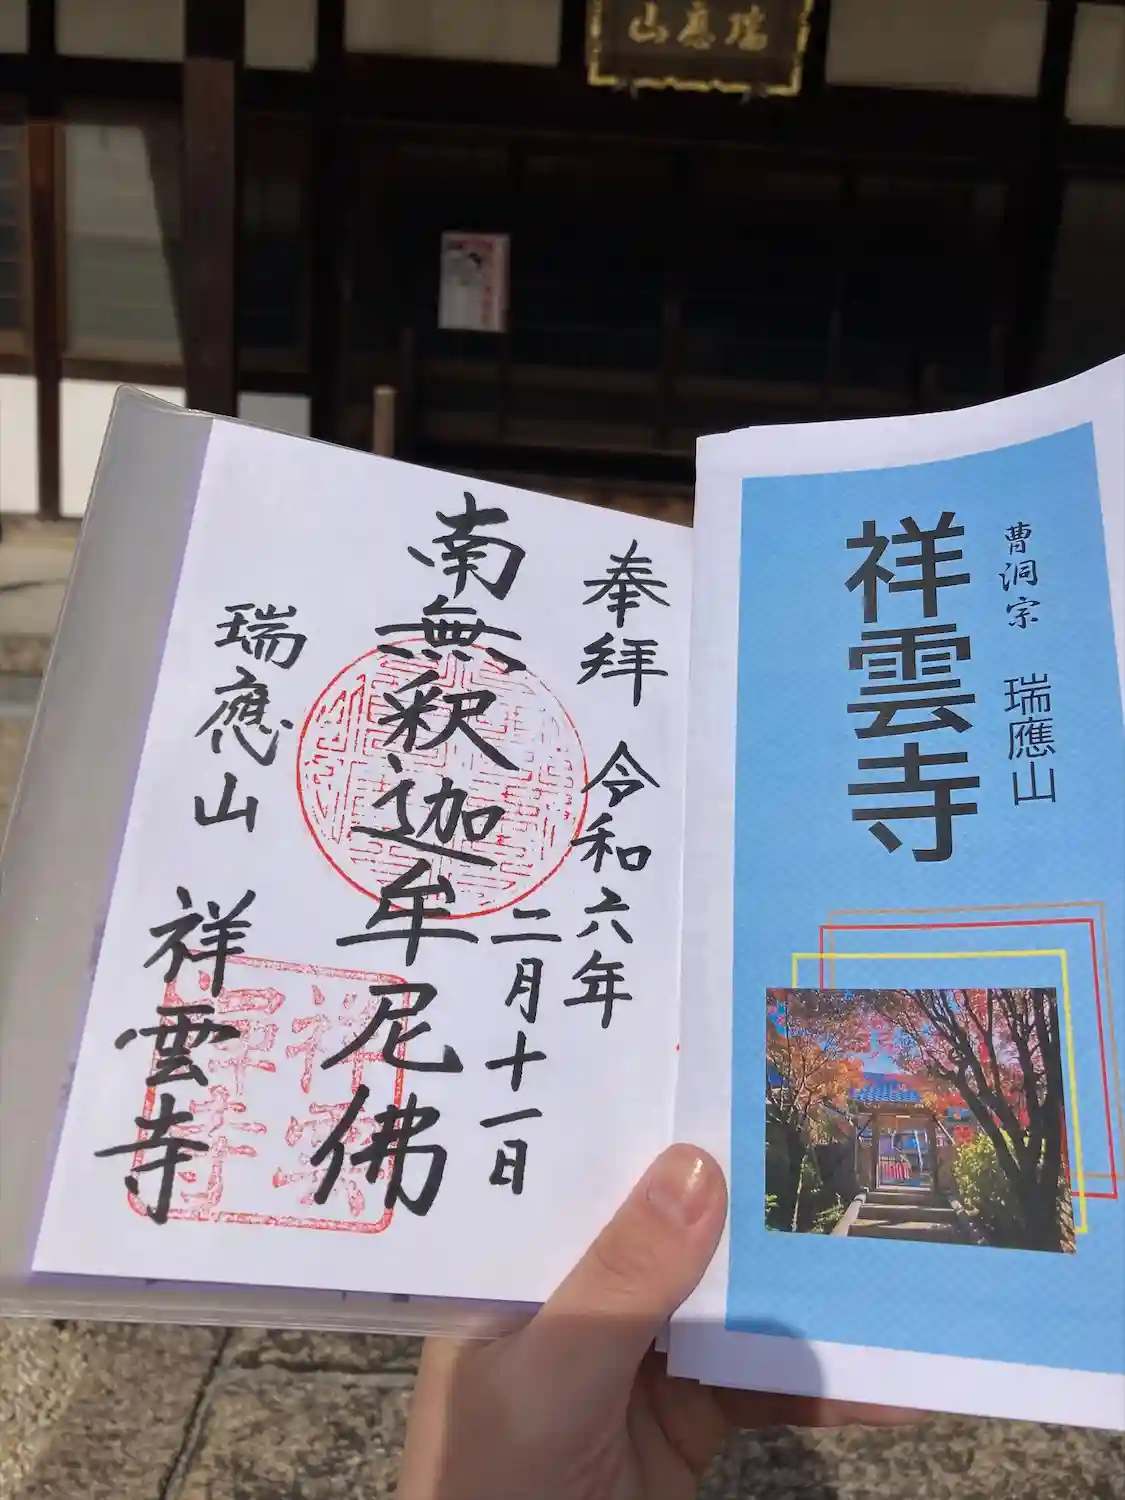 瑞應山
奉拝 令和六年
二月十一日
南無釈迦牟尼佛
瑞應山 祥雲寺
祥雲
禅寺
曹洞宗 瑞應山
祥雲寺